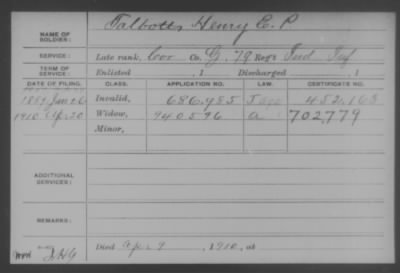 NAME OF SOLDIER: Talbotts Henry E. P.
SERVICE: Late rank, Co. G, 79 Reg't Ind Inf
TERM OF SERVICE: Enlisted , 1 Discharged , 1
DATE OF FILING. CLASS. APPLICATION NO. LAW. CERTIFICATE NO.
1889 Jan 26 Invalid, 686.985 452.168
1910 Apr 20 Widow, 940576 a 702,779
Minor,
ADDITIONAL SERVICES:
REMARKS:
Died Apr 9 , 1910, at